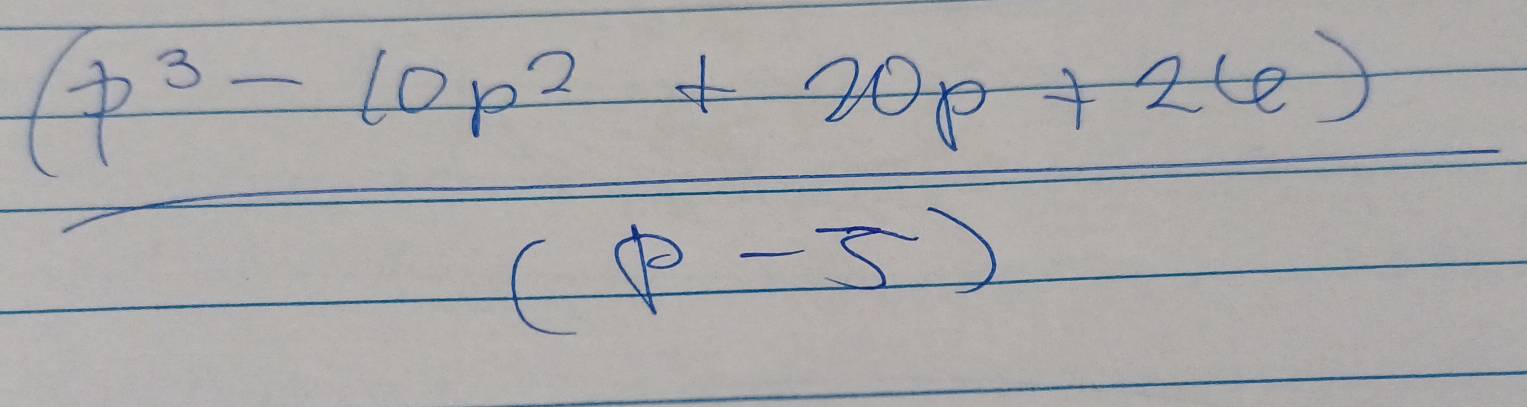 (p³ - 10p² + 20p + 26)
(p - 5)